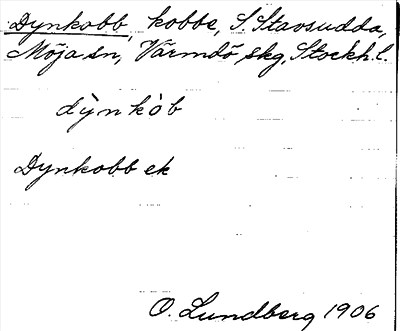 Dynkobb, kobbe, S. Stavsudda,
Möja sn, Värmdö skg, Stockh. l.
dỳnkòb
Dynkobb ek
O. Lundberg 1906